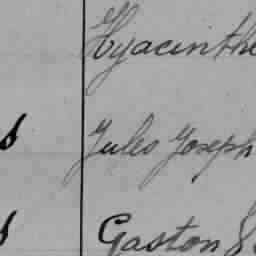 Hyacinthe
s Jules Joseph
s Gaston